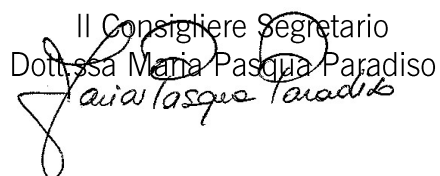 Il Consigliere Segretario
Dott.ssa Maria Pasqua Paradiso
Maria Pasqua Paradiso